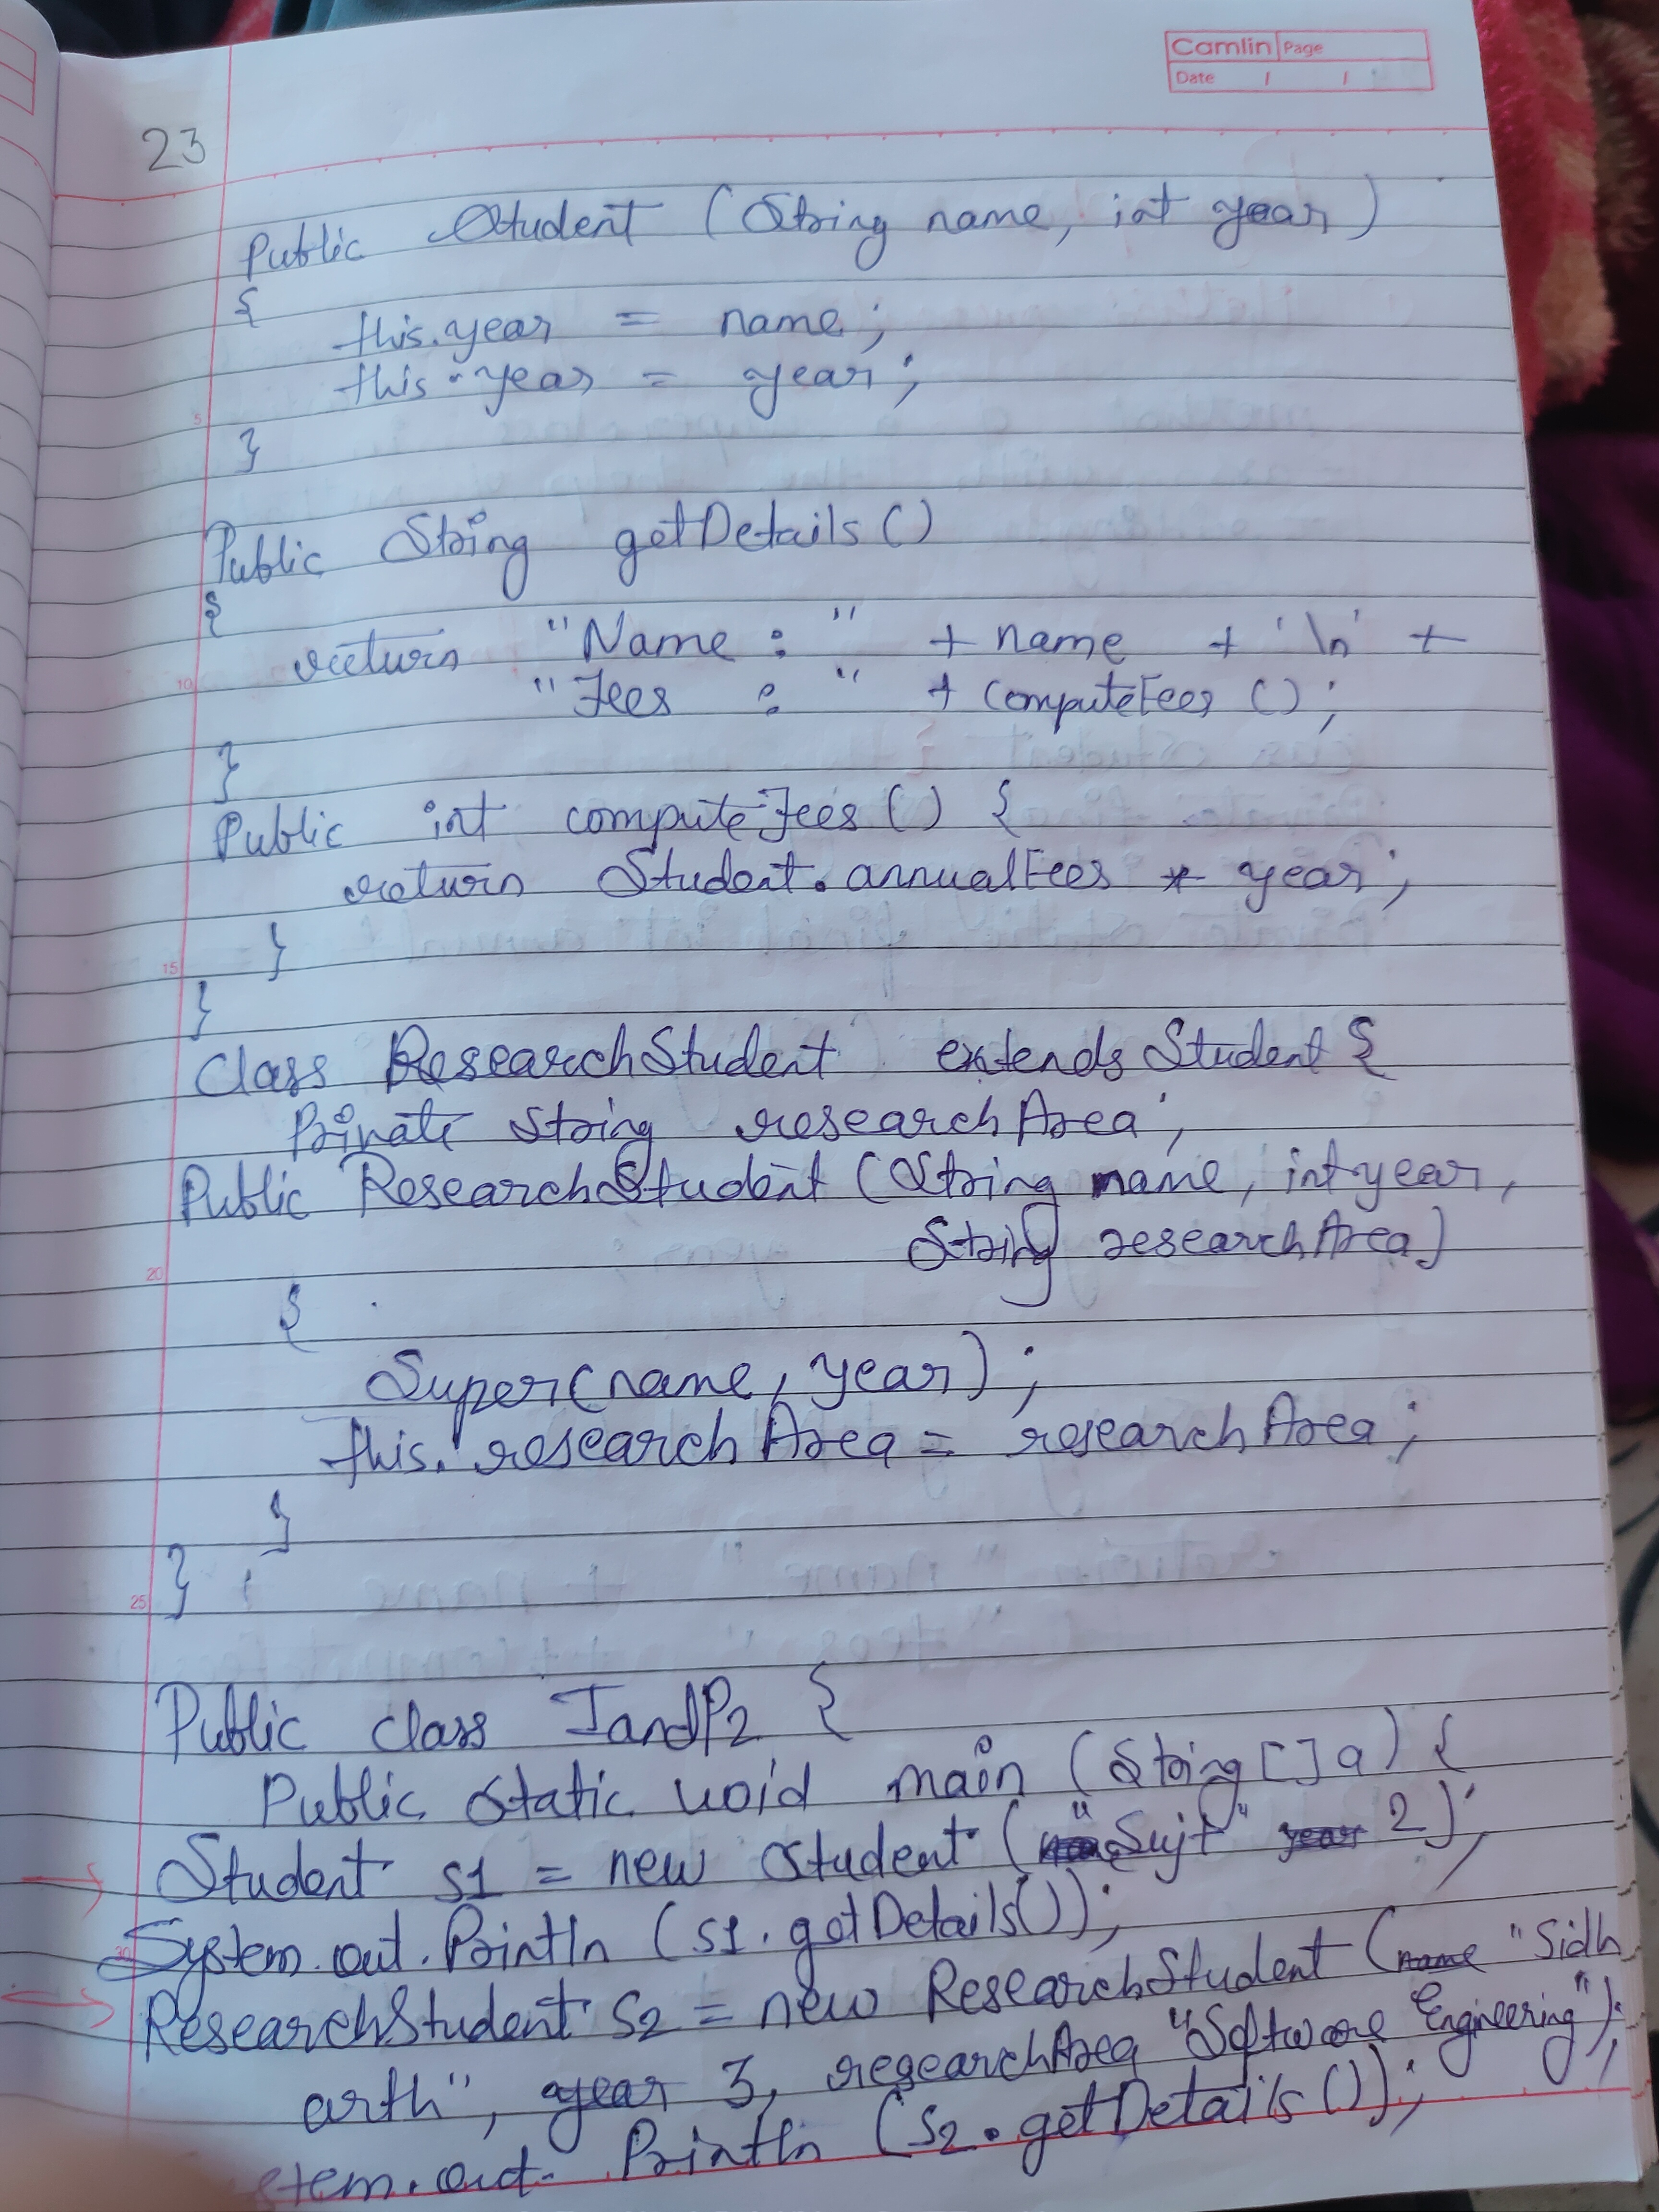 Camlin Page
Date / /
23
Public Student (String name, int year)
{
this.year = name;
this.year = year;
5
}
Public String getDetails()
{
return "Name : " + name + '\n' +
10
"Fees : " + computeFees ();
}
Public int computeFees () {
return Student.annualFees * year;
}
15
}
Class ResearchStudent extends Student {
Private String researchArea;
Public ResearchStudent (String name, int year,
String researchArea)
20
{
Super(name, year);
this.researchArea = researchArea;
}
25
}
Public class IandP2 {
Public static void main (String[] a) {
Student s1 = new Student ("Sujt" year 2);
System.out.Println (s1.getDetails());
30
ResearchStudent s2 = new ResearchStudent (name "Sidh
arth", year 3, researchArea "Software Engineering");
stem.out.Println (s2.getDetails());